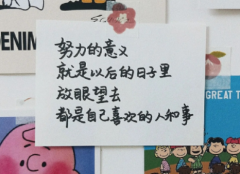 DENIM
努力的意义
就是以后的日子里
放眼望去
都是自己喜欢的人和事
GREAT T